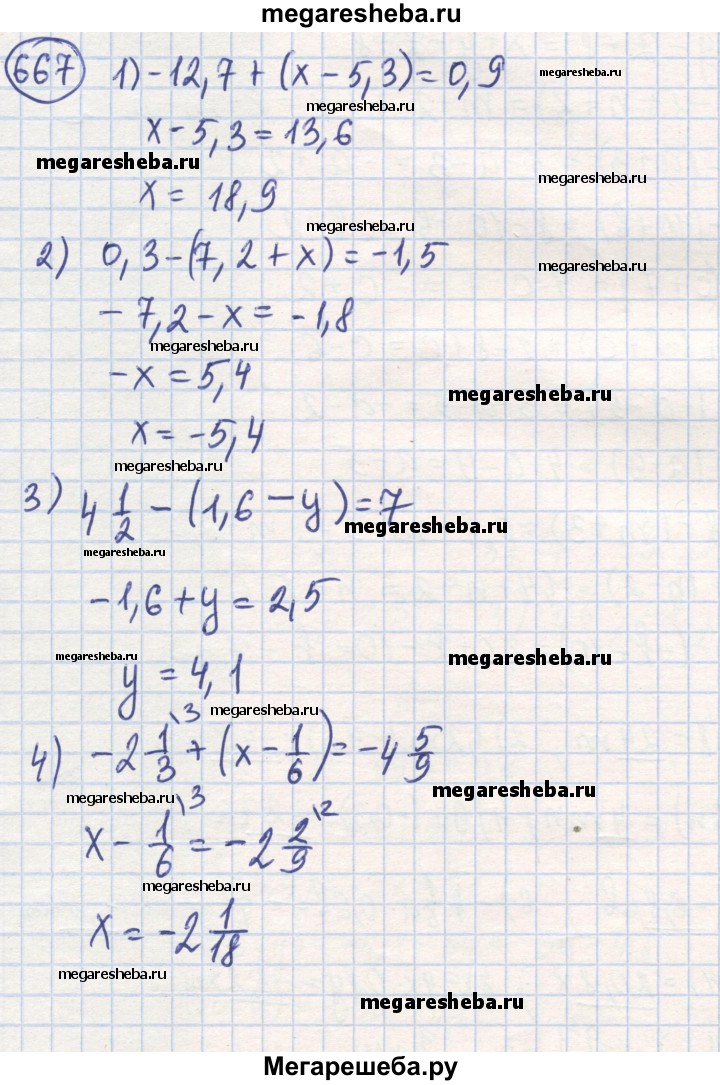 megaresheba.ru
667 1) -12,7 + (x - 5,3) = 0,9 megaresheba.ru
megaresheba.ru
x - 5,3 = 13,6
megaresheba.ru
megaresheba.ru
x = 18,9
megaresheba.ru
2) 0,3 - (7,2 + x) = -1,5
megaresheba.ru
- 7,2 - x = -1,8
megaresheba.ru
-x = 5,4
megaresheba.ru
x = -5,4
megaresheba.ru
3) 4 1/2 - (1,6 - y) = 7
megaresheba.ru
megaresheba.ru
-1,6 + y = 2,5
megaresheba.ru
megaresheba.ru
y = 4,1
megaresheba.ru
4) -2 1/3 \3 + (x - 1/6) = -4 5/9
megaresheba.ru
megaresheba.ru
x - 1/6 \3 = -2 2/9 \2
megaresheba.ru
x = -2 1/18
megaresheba.ru
megaresheba.ru
Мегарешеба.ру